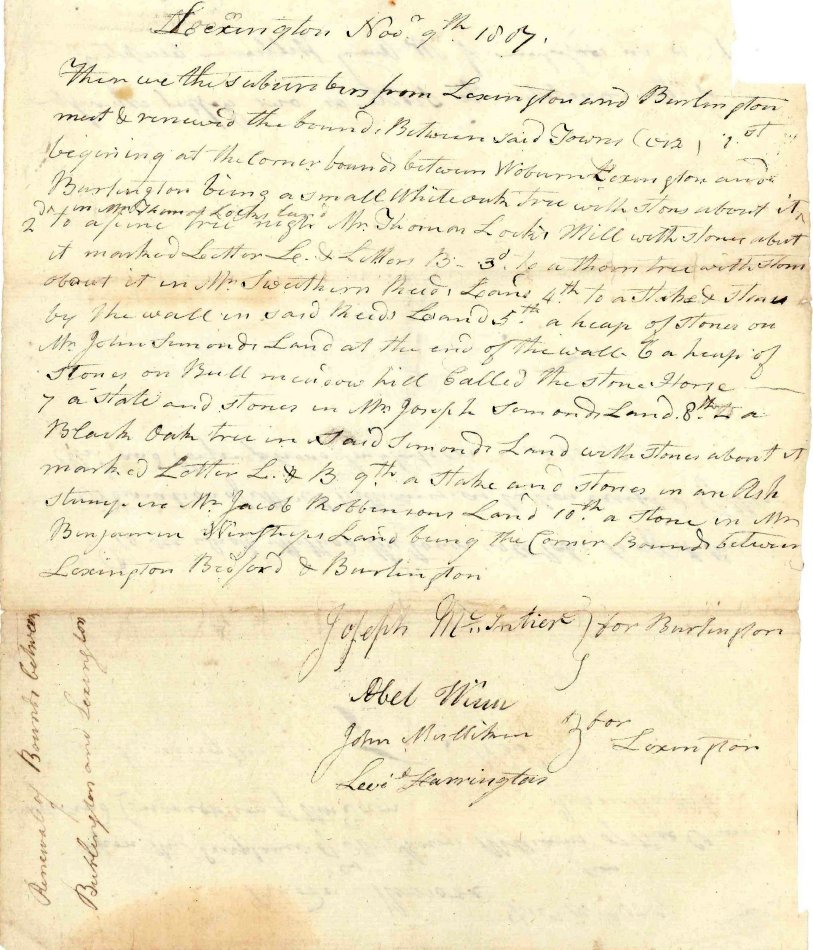 Lexington Novr 9th 1807.
Then we the subscribers from Lexington and Burlington
met & renewed the bounds Between said Towns (viz) 1st
begining at the Corner bounds between Woburn Lexington and
Burlington being a small White oak tree with stons about it
in Mr Thom of Locks land
2d to a pine tree nigh Mr Thomas Locks Mill with stones about
it marked Letter Le. & Letters B - 3d. to a thorn tree with stons
about it in Mr Swethern Reeds Land 4th to a Stake & Stones
by the wall in said Reeds Land 5th a heap of stones on
Mr John Simonds Land at the end of the wall 6 a heap of
Stones on Bull meadow hill Called the stone Horse
7 a Stake and Stones in Mr Joseph Simonds Land. 8th to a
Black Oak tree in said Simonds Land with stones about it
marked Letter L. & B. 9th a stake and stones in an Ash
stump in Mr Jacob Robbinsons Land 10th a stone in Mr
Benjamin Winships Land being the Corner Bounds between
Lexington Bedford & Burlington
Joseph McIntier } for Burlington
Abel Winn
John Mulliken } for
Lexington
Levi Harrington
Renewal of Bounds between
Burlington and Lexington